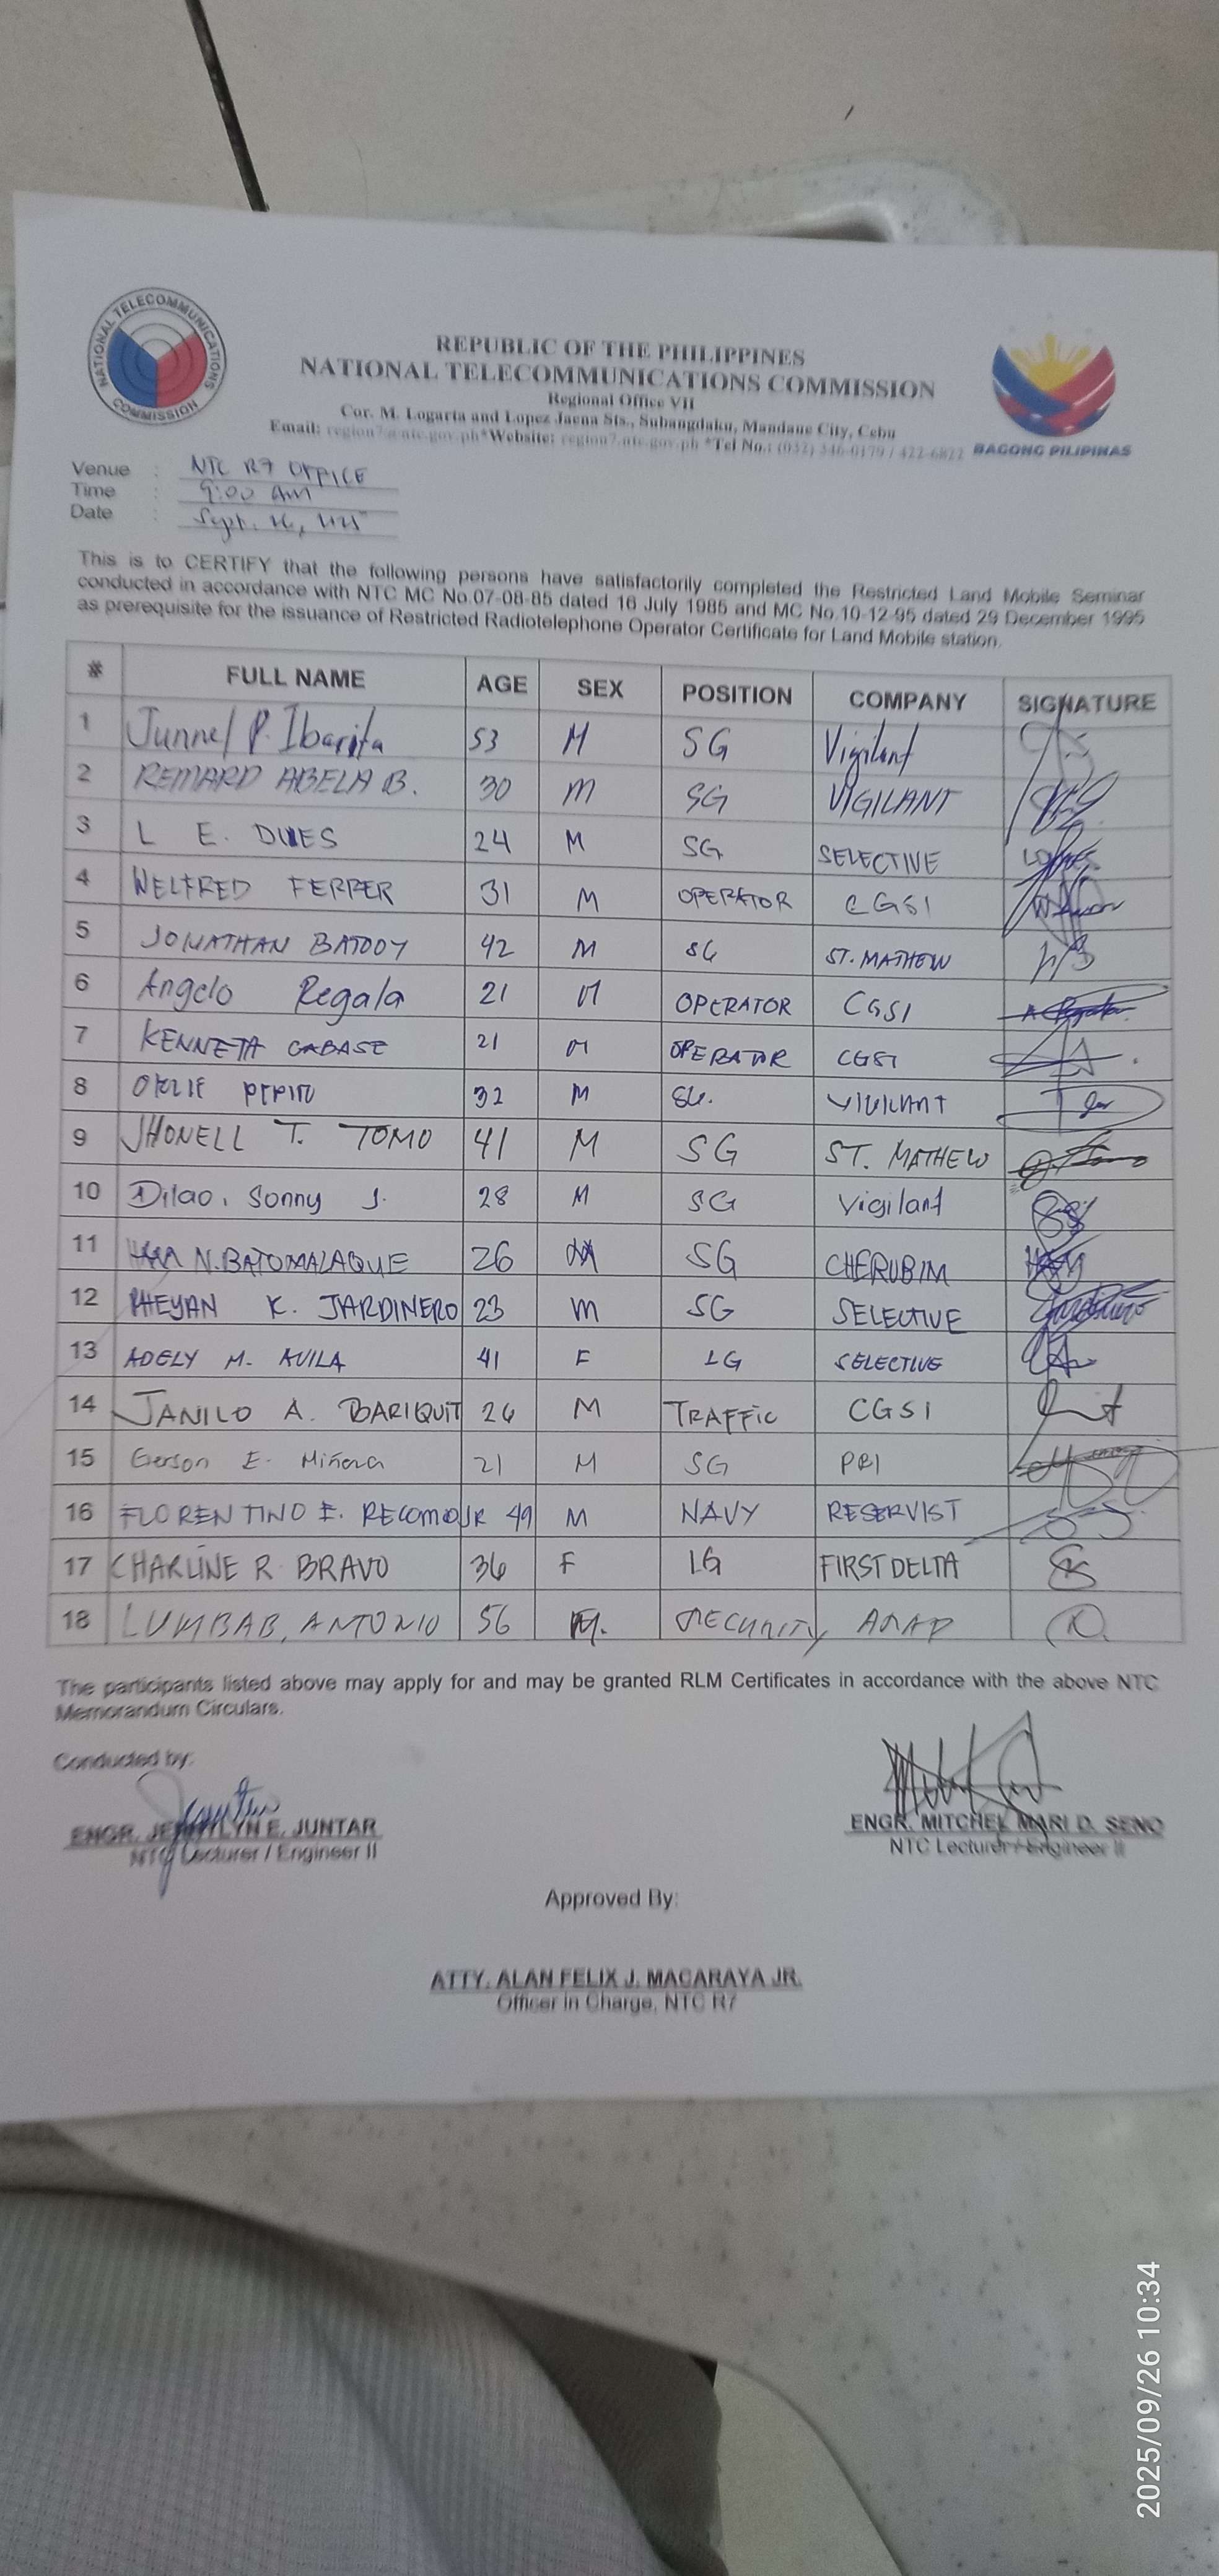 NATIONAL TELECOMMUNICATIONS COMMISSION
REPUBLIC OF THE PHILIPPINES
NATIONAL TELECOMMUNICATIONS COMMISSION
Regional Office VII
Cor. M. Logarta and Lopez Jaena Sts., Subangdaku, Mandaue City, Cebu
Email: region7@ntc.gov.ph*Website: region7.ntc.gov.ph *Tel No.: (032) 346-0179 / 422-6822
BAGONG PILIPINAS
Venue : NTC R7 OFFICE
Time : 9:00 am
Date : Sept.
This is to CERTIFY that the following persons have satisfactorily completed the Restricted Land Mobile Seminar
conducted in accordance with NTC MC No.07-08-85 dated 16 July 1985 and MC No.10-12-95 dated 29 December 1995
as prerequisite for the issuance of Restricted Radiotelephone Operator Certificate for Land Mobile station.
# FULL NAME AGE SEX POSITION COMPANY SIGNATURE
1 Junnel P. Ibarita 53 M SG Vigilant
2 REMARD ABELA B. 30 M SG VIGILANT
3 L E. 24 M SG SELECTIVE
4 WELFRED FERRER 31 M OPERATOR CGSI
5 JONATHAN 42 M SG ST. MATHEW
6 Angelo Regala 21 M OPERATOR CGSI
7 KENNETH GABASE 21 M OPERATOR CGSI
8 PEPITO 32 M SG. VIGILANT
9 JHONELL T. TOMO 41 M SG ST. MATHEW
10 Dilao, Sonny J. 28 M SG Vigilant
11 N. BATOMALAQUE 26 SG CHERUBIM
12 RHEYAN K. JARDINERO 23 M SG SELECTIVE
13 ADELY M. AVILA 41 F LG SELECTIVE
14 JANILO A. BARIQUIT 26 M TRAFFIC CGSI
15 Gerson E. Miñoza 21 M SG
16 FLORENTINO E. RECOMO JR 49 M NAVY RESERVIST
17 CHARLINE R. BRAVO 36 F LG FIRST DELTA
18 LUMBAB, ANTONIO 56 M. SECURITY
The participants listed above may apply for and may be granted RLM Certificates in accordance with the above NTC
Memorandum Circulars.
Conducted by:
ENGR. E. JUNTAR
NTC Lecturer / Engineer II
ENGR. MITCHEL MARI D. SENO
NTC Lecturer / Engineer II
Approved By:
ATTY. ALAN FELIX J. MACARAYA JR.
Officer In Charge, NTC R7
2025/09/26 10:34